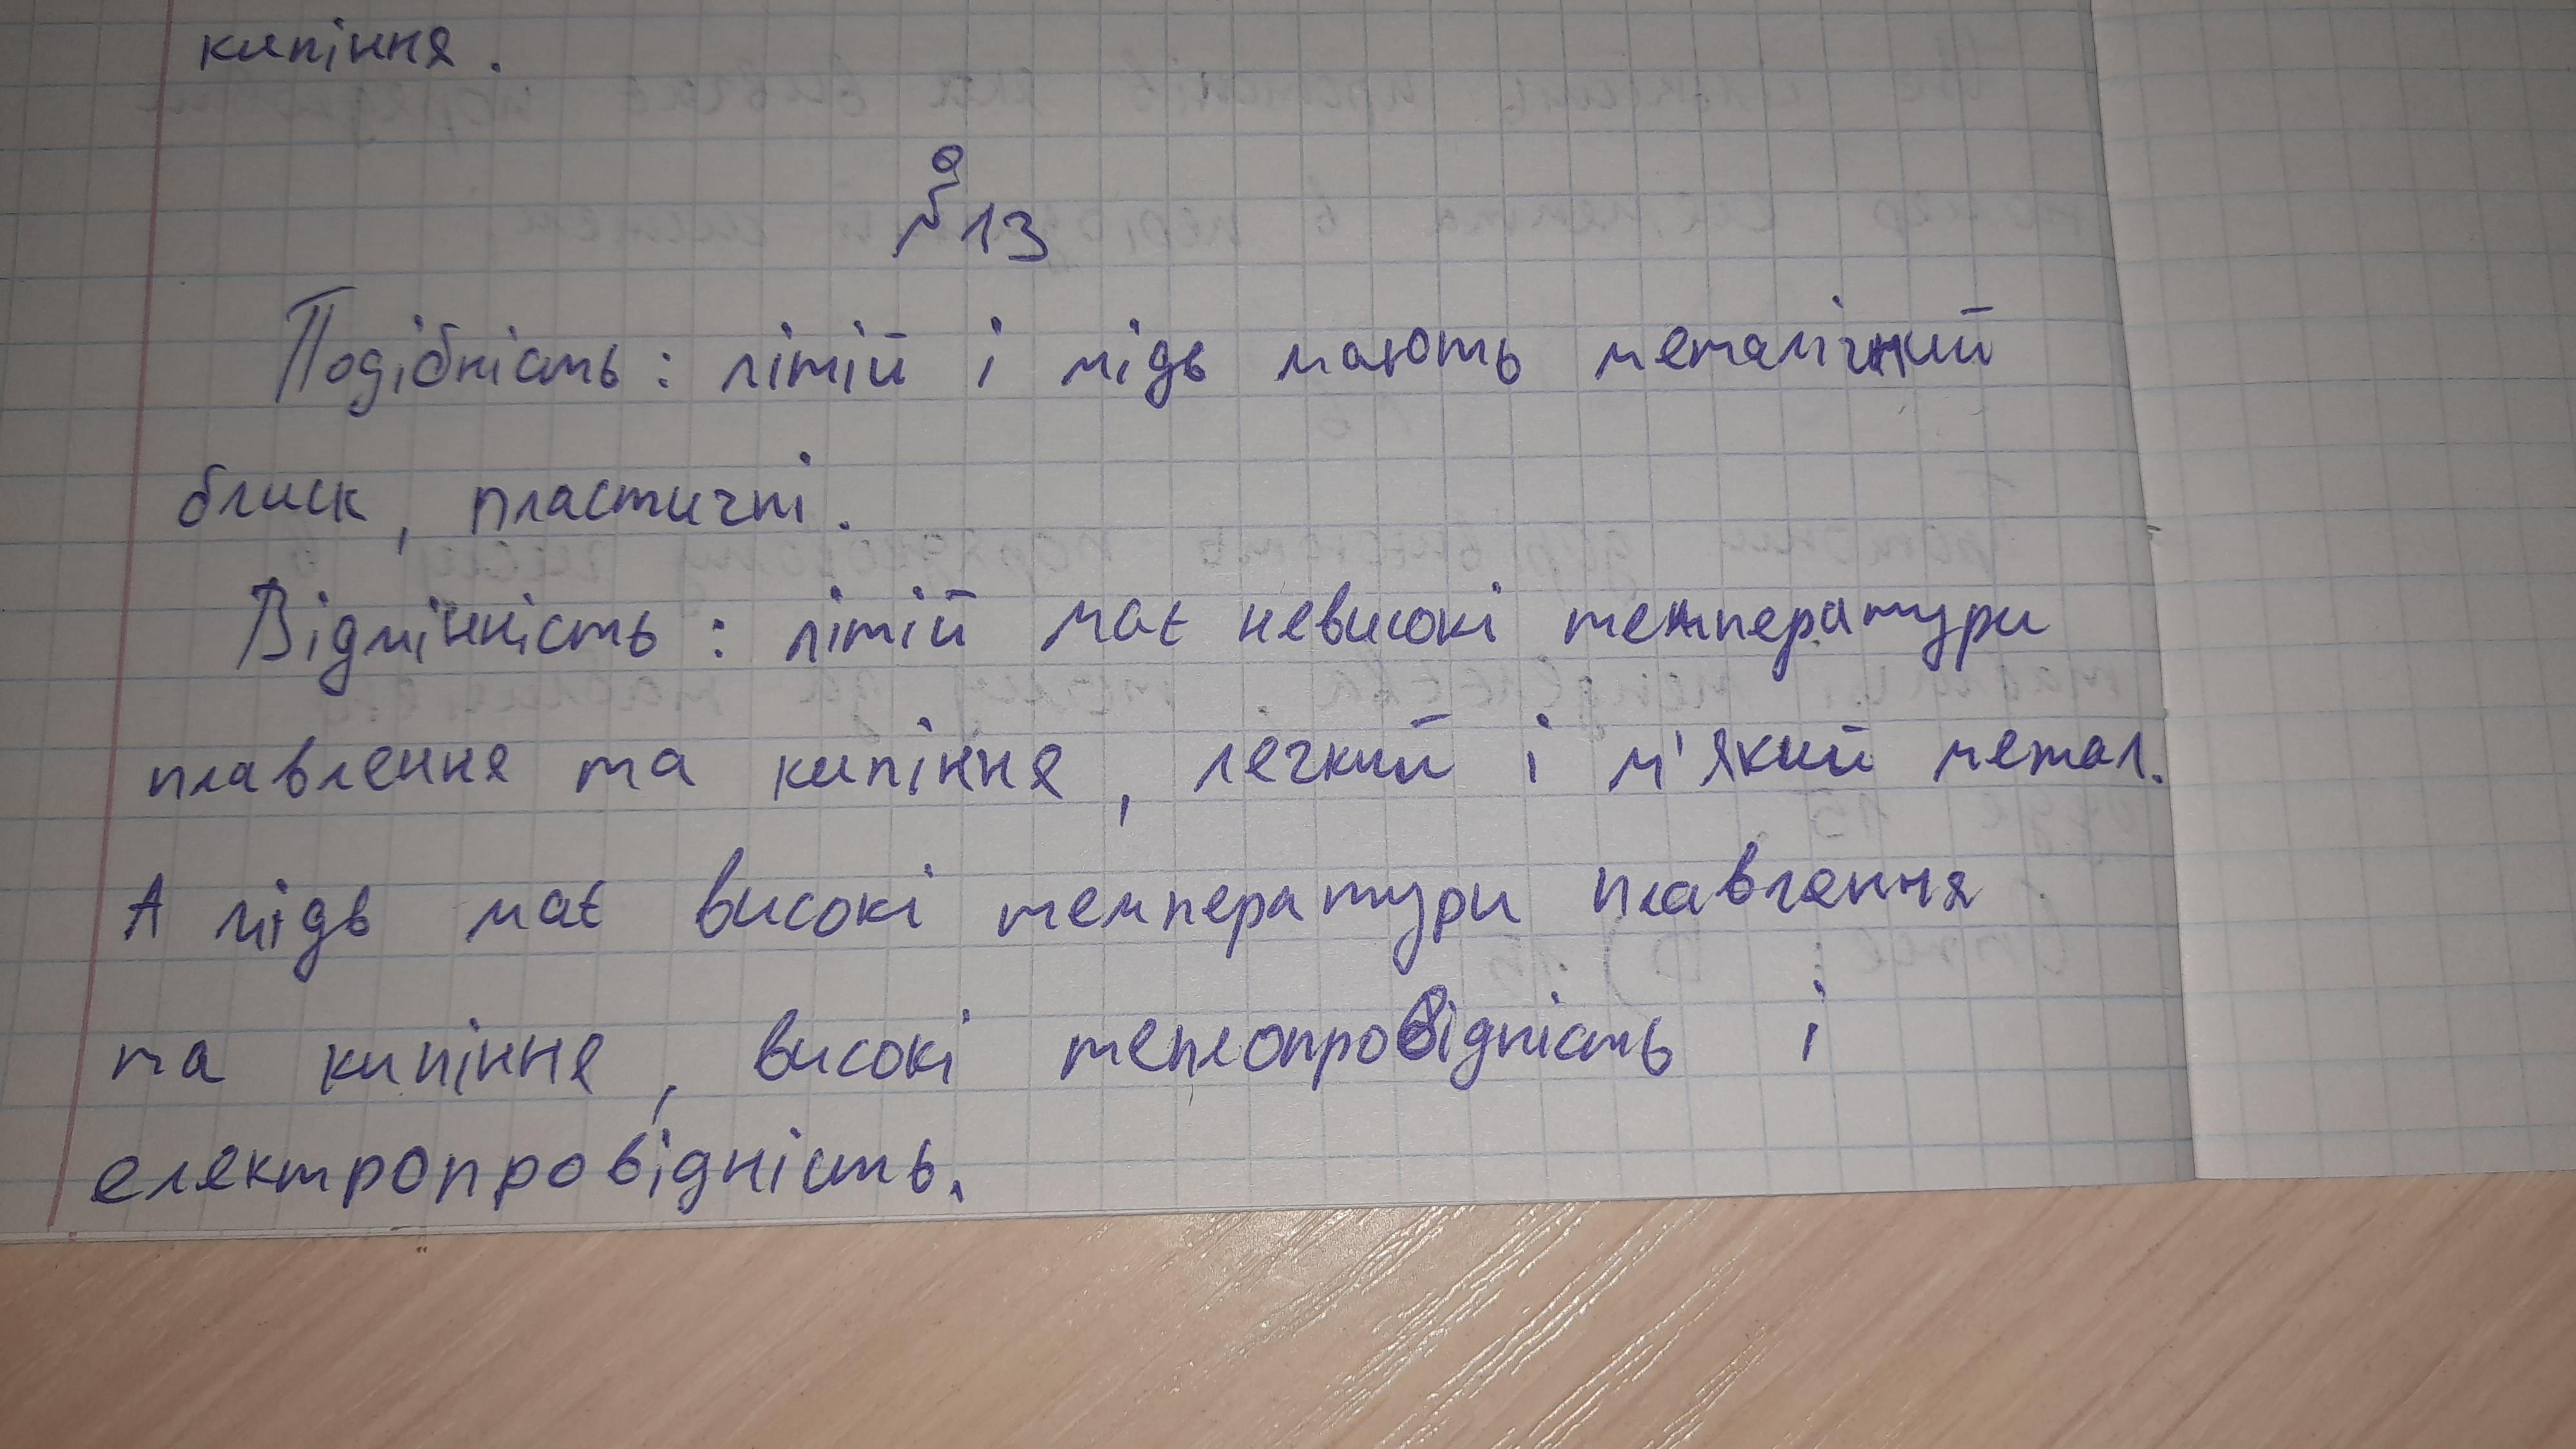 кипіння.
№13
Подібність: літій і мідь мають металічний
блиск, пластичні.
Відмінність: літій має невисокі температури
плавлення та кипіння, легкий і м'який метал.
А мідь має високі температури плавлення
та кипіння, високі теплопровідність і
електропровідність.